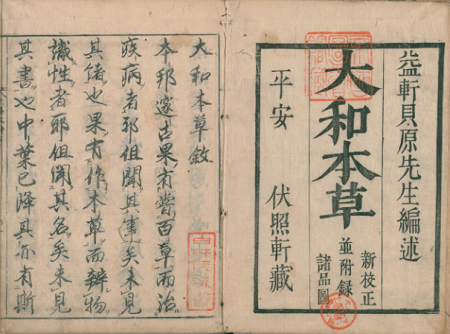 益軒貝原先生編述
大和本草
新校正
並附録
諸品圖
平安
伏照軒藏
大和本草敘
本邦邃古果有嘗百草而治
疾病者邪但聞其事矣未見
其偖也果有作本草而辨物
識性者耶但聞其名矣未見
其書也中葉已降其亦有斯